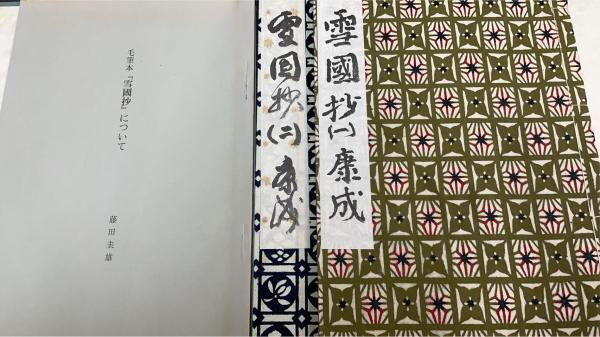 雪國抄(一)康成
雪国抄(二)康成
毛筆本『雪國抄』について
藤田圭雄